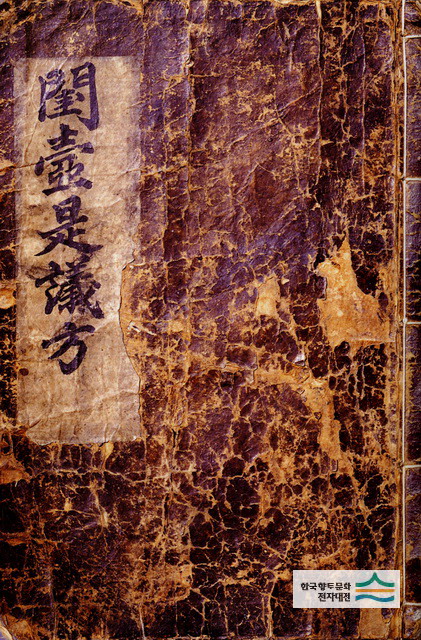 閨壼是議方
한국향토문화
전자대전